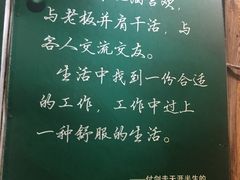 与老板并肩干活，与
客人交流交友。
生活中找到一份合适
的工作，工作中过上
一种舒服的生活。
——仗剑走天涯半生的